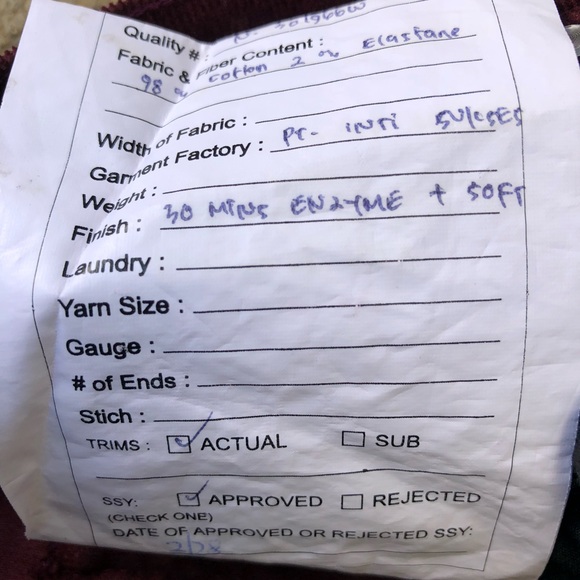 Quality # :
Fabric & Fiber Content :
98 % Cotton 2 % Elastane
Width of Fabric :
Garment Factory : PT- INTI SUKSES
Weight :
Finish : 30 MINS ENZYME + SOFT
Laundry :
Yarn Size :
Gauge :
# of Ends :
Stich :
TRIMS : ACTUAL SUB
SSY: APPROVED REJECTED
(CHECK ONE)
DATE OF APPROVED OR REJECTED SSY:
2/28